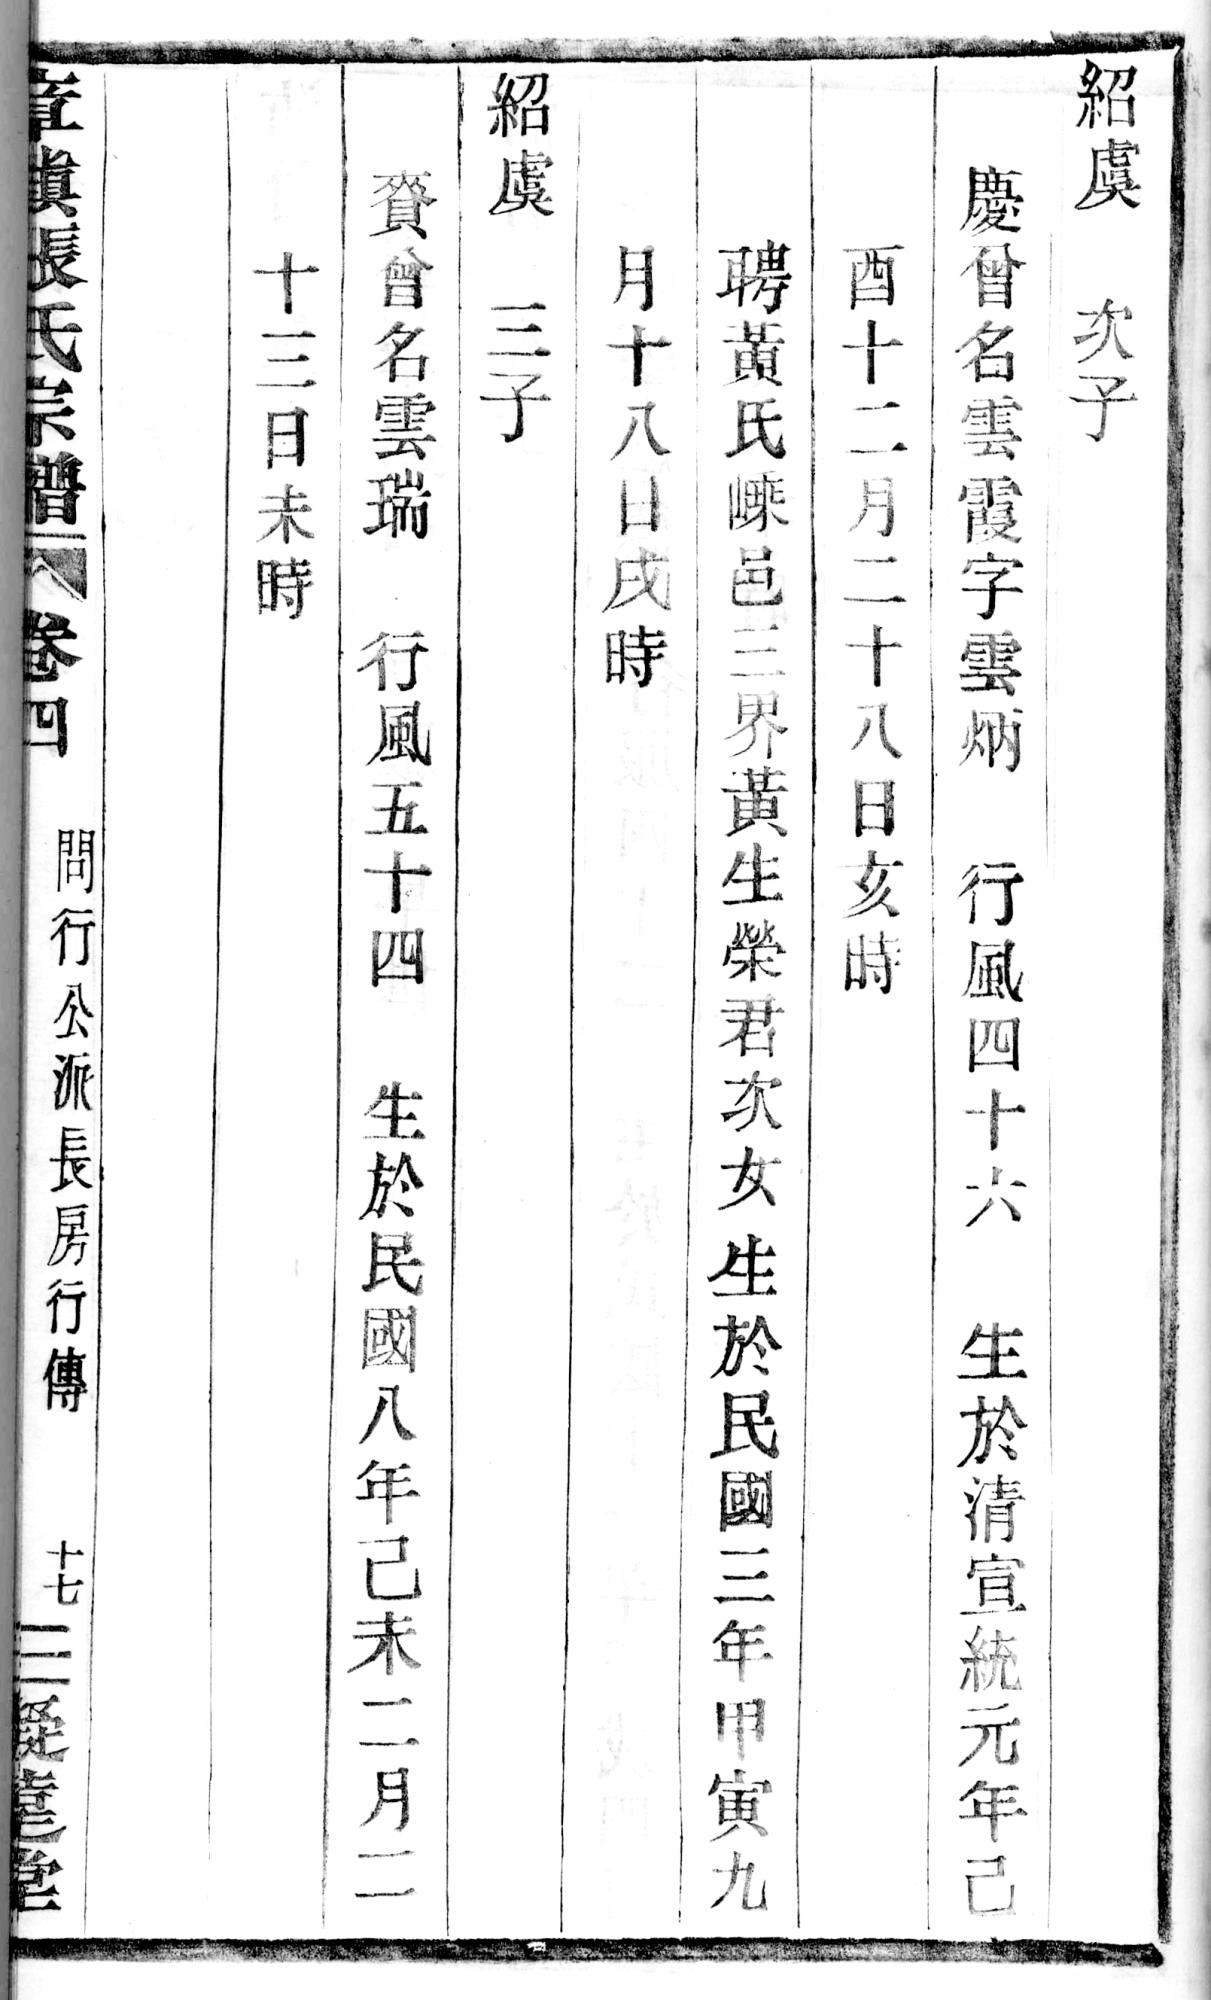 紹虞　次子
慶曾名雲霞字雲炳　行風四十六　生於清宣統元年己
酉十二月二十八日亥時
聘黃氏嵊邑三界黃生榮君次女生於民國三年甲寅九
月十八日戌時
紹虞　三子
賚曾名雲瑞　行風五十四　生於民國八年己未二月二
十三日未時
張氏宗譜　卷四　問行公派長房行傳　十七　三凝堂